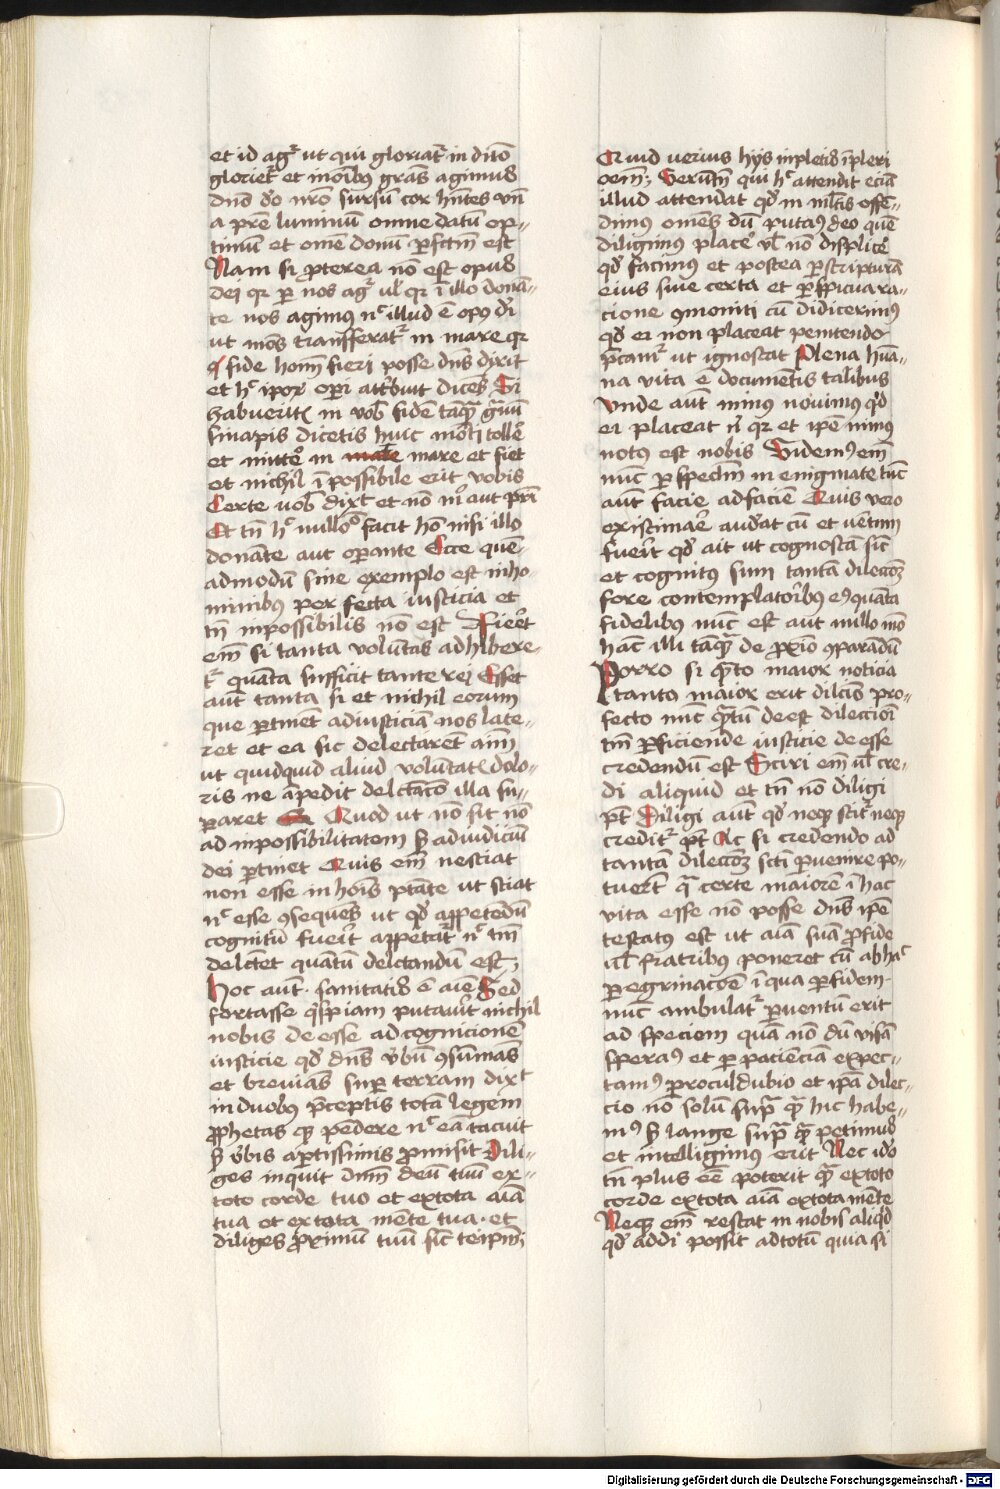 et id agr̄ ut qui gloriat᷑ in dn̄o
gloriet᷑ et in om̄ibꝯ grās agimus
dn̄o dō nr̄o sursū cor hn̄tes vn̄
a pr̄e luminū omne datū op-
timū et om̄e donū ꝑfctm̄ est
Nam si ꝓterea nō est opus
dei qr ꝑ nos agr̄ ul̄ qr ī illo donā-
te nos agimus nc̄ illud ē opꝯ dī
ut mōs transferat᷑ in mare qr
fide homī fieri posse dn̄s dixit
et hc̄ ipōr opi attbuit dicēs Si
habueritꝭ in vob fidē tāq̄ g̃nū
sinapis dicetis huic mōti tolle
et mitte in mare mare et fiet
et nichil īpossibile erit vobis
Certe vob dixt et nō mͥ aut pri
Et tn̄ hc̄ nullꝯ facit hō nisi illo
donāte aut oꝑante Ecce quē-
admodū sine exemplo est in ho-
minibꝯ per fecta iusticia et
tn̄ inpossibilis nō est Fieret
em̄ si tanta volūtas adhibere-
t᷑ quāta sufficit tante rei Esset
aut tanta si et nichil eorum
que ꝑtinēt ad iusticiā nos late-
ret et ea sic delectarēt aim̄
ut quidquid aliud volūtatꝭ dolo-
ris ne ānpedit delctacō illa su-
ꝑaret Quod ut nō sit nō
ad inpossibilitatem s̄ ad iudiciū
dei ꝑtinet Quis em̄ nesciat
non esse in hoīs ptāte ut sciat
nc̄ esse ꝯsequēs ut qd̄ appetēdū
cognitū fuerit appetat᷑ nc̄ tm̄
delctet quātū delctandū est
Hoc aut sanitatis ē aīe Sed
fortasse qͥspiam putauit nichil
nobis deesse ad cognicionē
iusticie qd̄ dn̄s v̄bū ꝯsūmās
et breuiās suꝑ terram dixt
in duobꝯ p̄ceptis totā legem
ꝓphetas qꝫ pēdere nc̄ ea tacuit
s̄ v̄bis aꝑtissimis ꝓmisit Dili-
ges inquit dn̄m deū tuū ex-
toto corde tuo et ex tota aīa
tua et ex tota mēte tua et
diliges ꝓximū tuū sic̄ teipm̄
Quid uerius hijs inpletis īpleri
oem̄ Verūtn̄ qui hc̄ attendit eciā
illud attendat qd̄ in mltis offē-
dimꝯ omēs dū putaꝯ deo quē
diligimꝯ place᷑ vl̄ nō displice᷑
qd̄ facimꝯ et postea ꝑ scripturā
eius siue certa et ꝑspicua ra-
cione ꝯmoniti cū didicerimꝯ
qd̄ ei non placeat penitendo
p̄cam᷑ ut ignoscat Plena hūa-
na vita ē documētis talibus
Vnde aut̄ minꝯ nouimꝯ qd̄
ei placeat n̄ qr et ipē minꝯ
notꝯ est nobis Videmꝯ em̄
nūc ꝑ spec̄lm in enigmate tūc
aut̄ facie ad faciē Quis vero
existimare audeat cū et uētum
fuerit qd̄ ait ut cognoscā sic̄
et cognitꝯ sum tantā dileccōꝫ
fore contemplatoribꝯ eiꝯ quāta
fidelibꝯ nūc est aut nullo mō
hāc illi tāq̄ de ꝓxīo ꝯparādū
Porro si q̃to maior noticia
tanto maior erit dilcīo pro-
fecto nūc q̃tū deest dileccioī
tm̄ ꝑficiende iusticie deesse
credendū est Sciri em̄ ul̄ cre-
di aliquid et tn̄ nō diligi
pt̄ Diligi aut̄ qd̄ neqꝫ scit᷑ neqꝫ
credit᷑ pt̄ Ac si credendo ad
tantā dileccōꝫ scti ꝑuenire po-
tuert̄ q̄ certe maiorē ī hac
vita esse nō posse dn̄s ipē
testatꝯ est ut aīam suā ꝓ fide
ul̄ fratribus poneret cū ab hac
ꝑegrinacōe ī qua ꝑ fidem
nūc ambulat᷑ ꝑuentū erit
ad speciem quā nō dū visā
speraꝯ et ꝑ paciēciā expec-
tamꝯ ꝓculdubio et ipā dilec-
cio nō solū suꝑ q̄ hic habe-
mꝯ s̄ lange suꝑ q̄ petimus
et intelligimꝯ erit Nec idō
tn̄ plus eē poterit q̄ ex toto
corde ex tota aīa ex tota mēte
Neqꝫ em̄ restat in nobis aliqd̄
qd̄ addi possit ad totū quia si
Digitalisierung gefördert durch die Deutsche Forschungsgemeinschaft - DFG